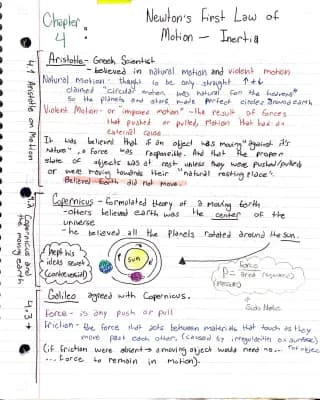 Chapter 4:
Newton's First Law of
Motion - Inertia
4.1 Aristotle on Motion
Aristotle - Greek Scientist
- believed in natural motion and violent motion
Natural motion - thought to be only straight ↑↓↓
claimed "circular motion was natural for the heavens"
So the planets and stars made perfect circles around earth
Violent Motion - or "imposed motion" - the result of forces
that pushed or pulled, Motion that had an
external cause
It was believed that if an object was moving "against it's
nature", a force was responsible. And that the proper
state of objects was at rest unless they were pushed/pulled
or were moving towards their "natural resting place".
Believed Earth did not move.
4.2 Copernicus and the moving earth
Copernicus - formulated theory of a moving earth
- others believed earth was the center of the
universe
- he believed all the planets rotated around the sun.
kept his
ideas secret
(controversial)
sun
P = Force
area
(pressure)
Side Note
4.3 →
Galileo agreed with Copernicus.
Force - is any push or pull
friction - the force that acts between materials that touch as they
move past each other. (caused by irregularities on surface)
(if friction were absent → a moving object would need no...
... force to remain in motion).